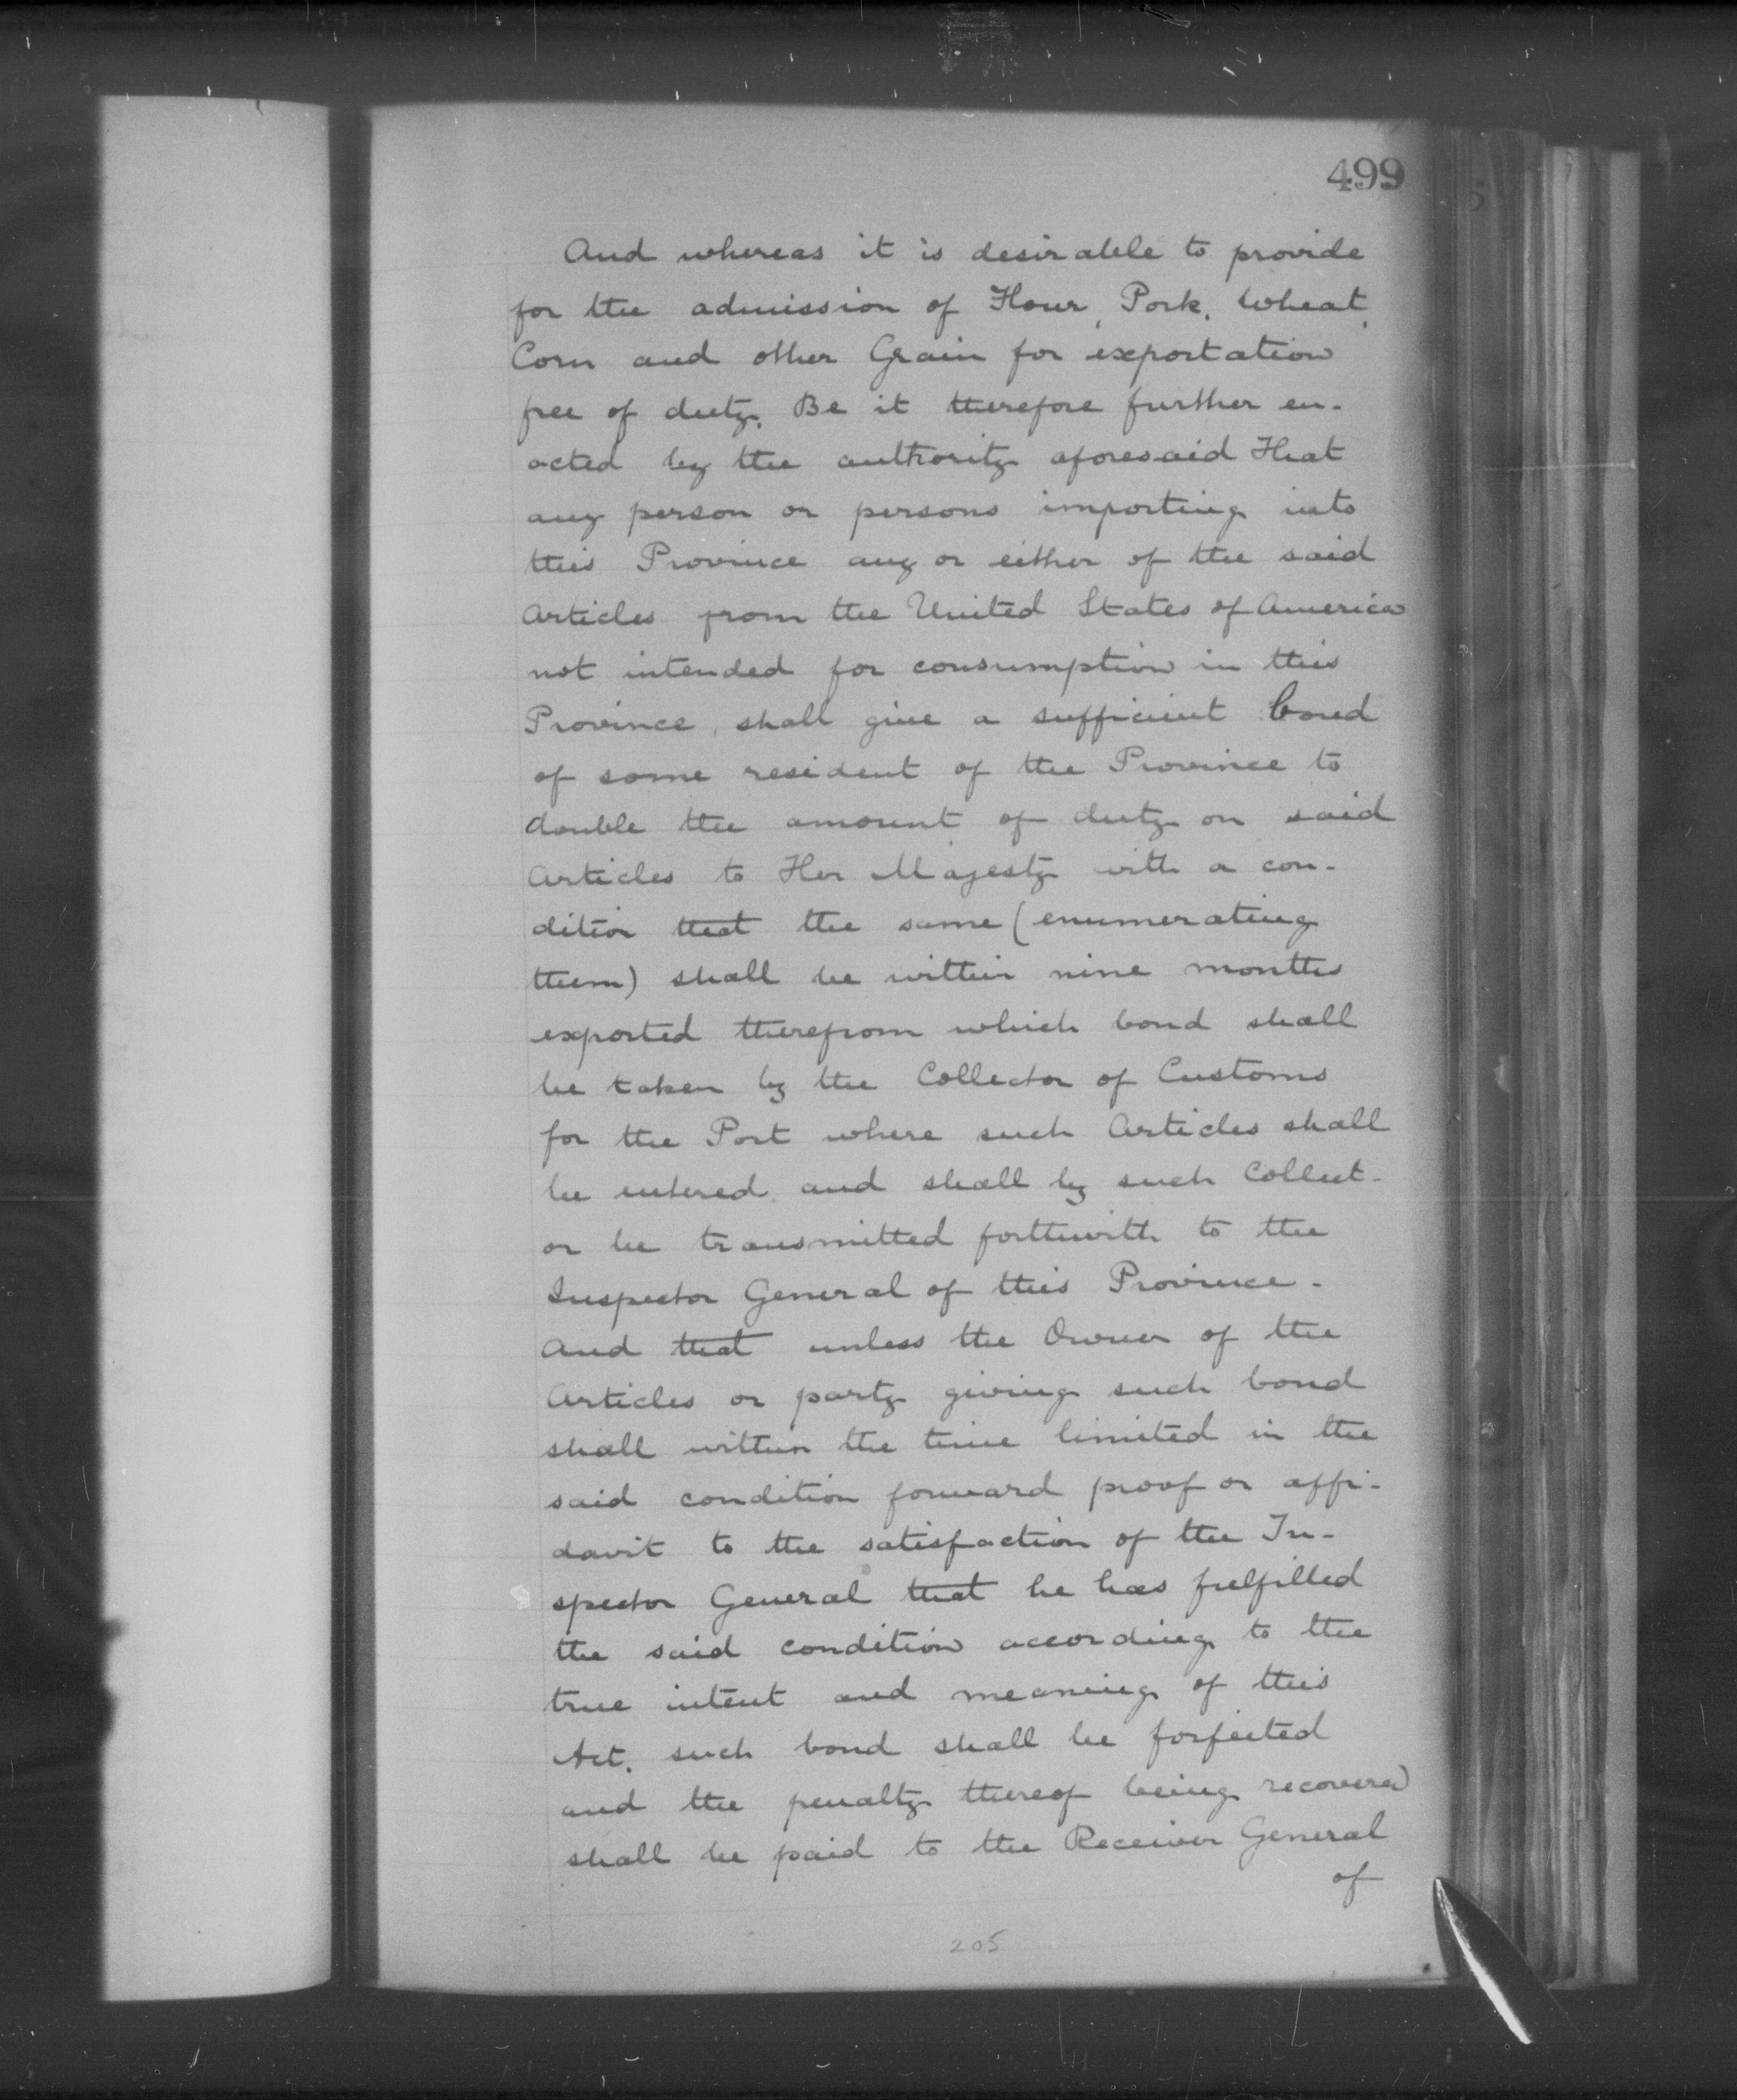 499
And whereas it is desirable to provide
for the admission of Flour, Pork, Wheat,
Corn and other Grain for exportation
free of duty. Be it therefore further en-
acted by the authority aforesaid That
any person or persons importing into
this Province any or either of the said
Articles from the United States of America
not intended for consumption in this
Province, shall give a sufficient bond
of some resident of the Province to
double the amount of duty on said
Articles to Her Majesty with a con-
dition that the same (enumerating
them) shall be within nine months
exported therefrom which bond shall
be taken by the Collector of Customs
for the Port where such Articles shall
be entered and shall by such Collect-
or be transmitted forthwith to the
Inspector General of this Province.
And that unless the Owner of the
Articles or party giving such bond
shall within the time limited in the
said condition forward proof or affi-
davit to the satisfaction of the In-
spector General that he has fulfilled
the said condition according to the
true intent and meaning of this
Act. such bond shall be forfeited
and the penalty thereof being recovered
shall be paid to the Receiver General
of
205